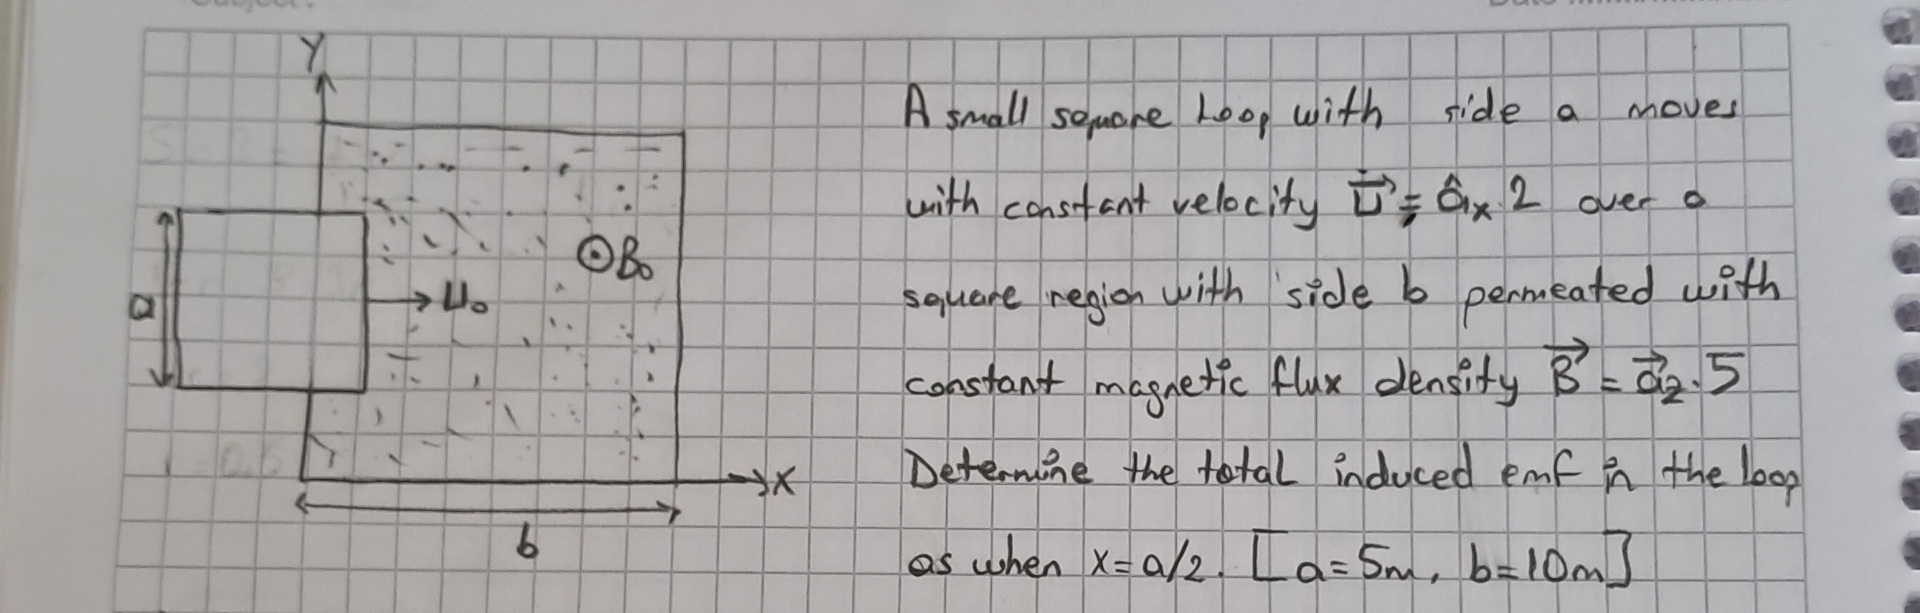 Y
A small square Loop with side a moves
with constant velocity U⃗ = âx 2 over a
⊙B₀
square region with side b permeated with
a
U₀
constant magnetic flux density B⃗ = a⃗z.5
Determine the total induced emf in the loop
x
b
as when x=a/2. [a=5m, b=10m]